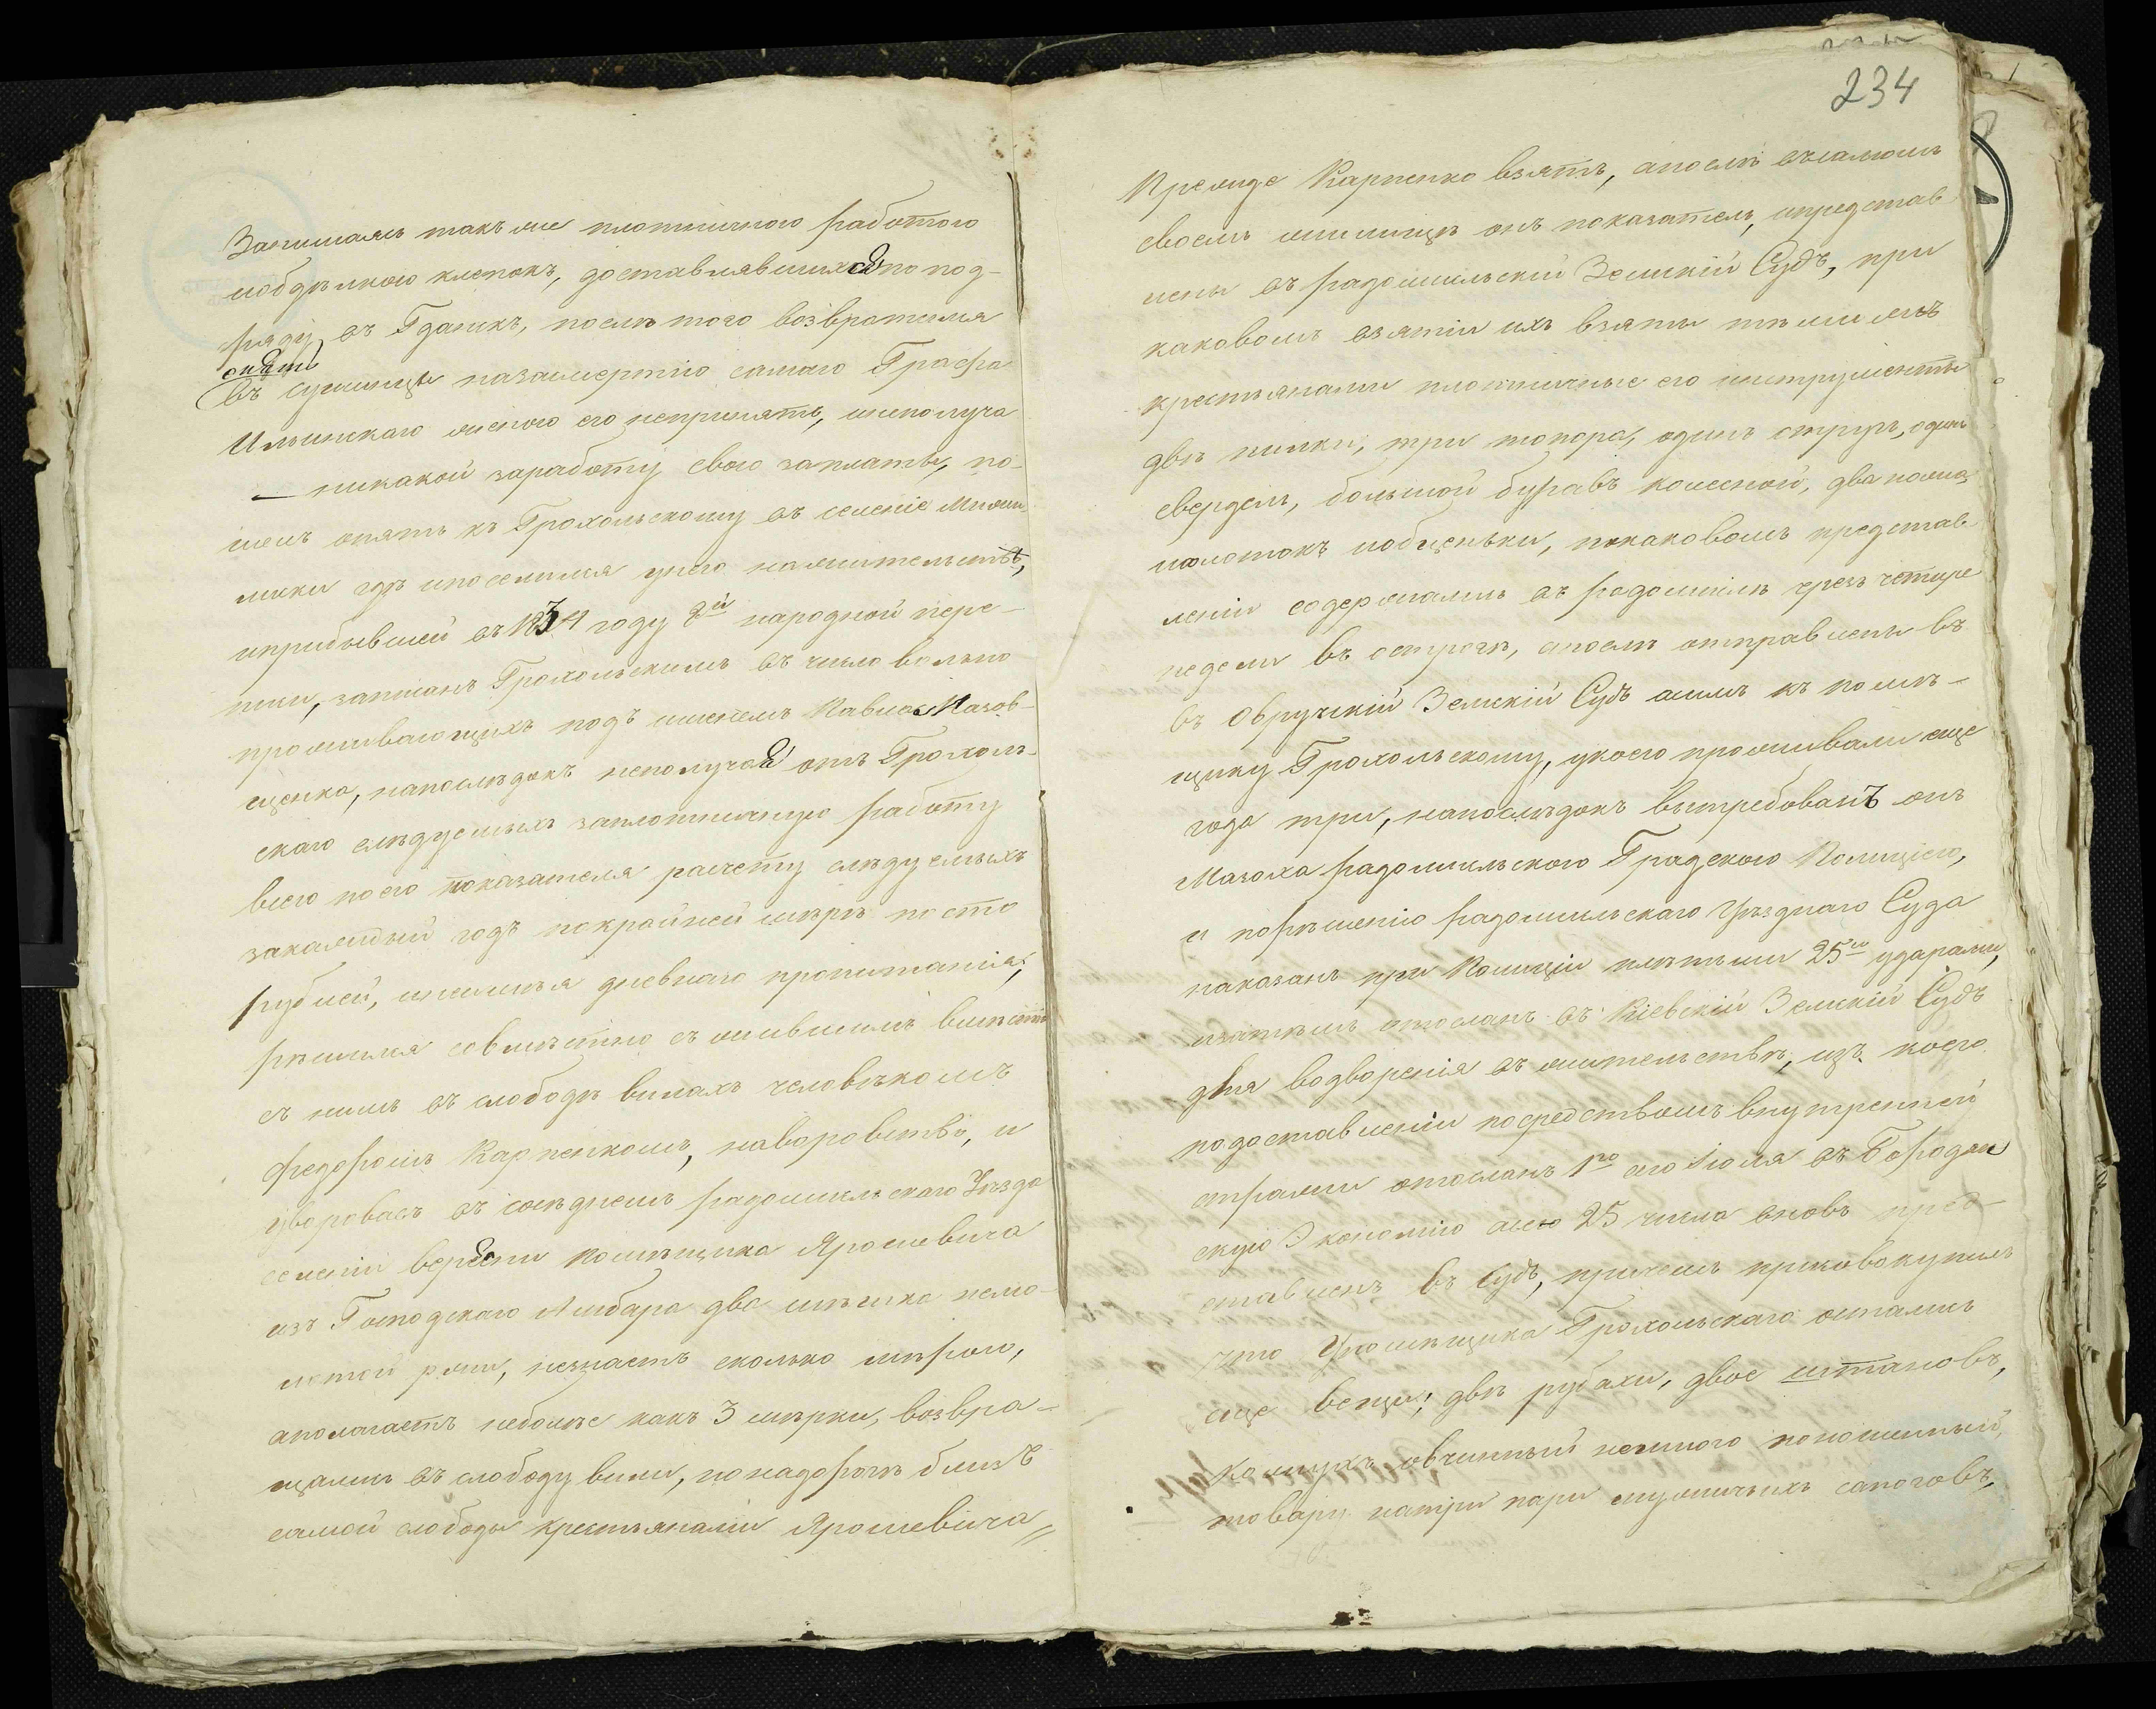 Занимаясь такъ же плотничною работою
иобдѣлкою клепокъ, доставлявшихся по под-
ряду въ Гданскъ, послѣ того возвратился
опять
въ Сушинцы назасмертію самаго Графа
Илинскаго женою его непринятъ, инеполуча
никакой заработу свою заплаты, по-
шелъ опять къ Грохольскому въ селеніе
гдѣ ипоселился унего нажительствѣ,
иприбывшей въ 1834 году 8й народной пере-
писи, записанъ Грохольскимъ въ число вольно
проживающихъ подъ именемъ Павла Назов-
ценка, напослѣдокъ неполучая отъ Грохоль-
скаго слѣдуемыхъ заплотничную работу
всего поего показателя расчету слѣдуемыхъ
закаждый годъ покрайней мѣрѣ по сто
рублей, инеимѣя дневнаго пропитанія,
рѣшился совмѣстно съ жившимъ вмѣстѣ
съ нимъ въ слободѣ вилахъ человѣкомъ
Федоромъ Карпенкомъ, наворовство, и
уворовавъ въ сосѣднемъ радомысльскаго Уѣзда
селеніи вересни помѣщика Ярошевича
изъ Господскаго Амбара два мѣшка немо-
лотой ржи, незнаетъ сколько мѣрою,
аполагаетъ неболѣе какъ 3 мѣрки, возвра-
щались въ слободу вили, понадорогѣ близъ
самой слободы крестьянами Ярошевича
234
Прежде Карпенко взятъ, апослѣ въсамомъ
своемъ жилищѣ онъ показатель, ипредстав
лены въ радомысльскій Земскій Судъ, при
каковомъ взятіи ихъ взяты тѣми жъ
крестьянами плотничные его инструменты
двѣ пилки, три топора, одинъ стругъ, одинъ
свердел, большой буравъ колесной, два
молотокъ иобценьки, покаковомъ представ
леніи содержались въ радомыслѣ чрезъ четыре
недели въ острогѣ, апослѣ отправлены въ
въ Овручскій Земскій Судъ аимъ къ помѣ-
щику Грохольскому, укоего проживали еще
года три, напослѣдокъ витребованъ онъ
Мазоха радомысльскою Градскою Полицією,
и порѣшенію радомысльскаго Уѣзднаго Суда
наказанъ при Полиціи плѣтьми 25ю ударами,
изатѣмъ отосланъ въ Кіевскій Земскій Судъ
для водворенія въ жительствѣ, изъ коего
подоставленіи посредствомъ внутренней
стражи отосланъ 1го сего Іюля въ Городец
скую Экономію асего 25 числа вновь пред-
ставленъ въ Судъ, причемъ присовокупилъ
что Упомѣщика Грохольскаго остались
еще вещи; двѣ рубахи, двое штановъ,
Кожухъ овчинный немного поношенный,
товару натри пари мужичьихъ сапоговъ,